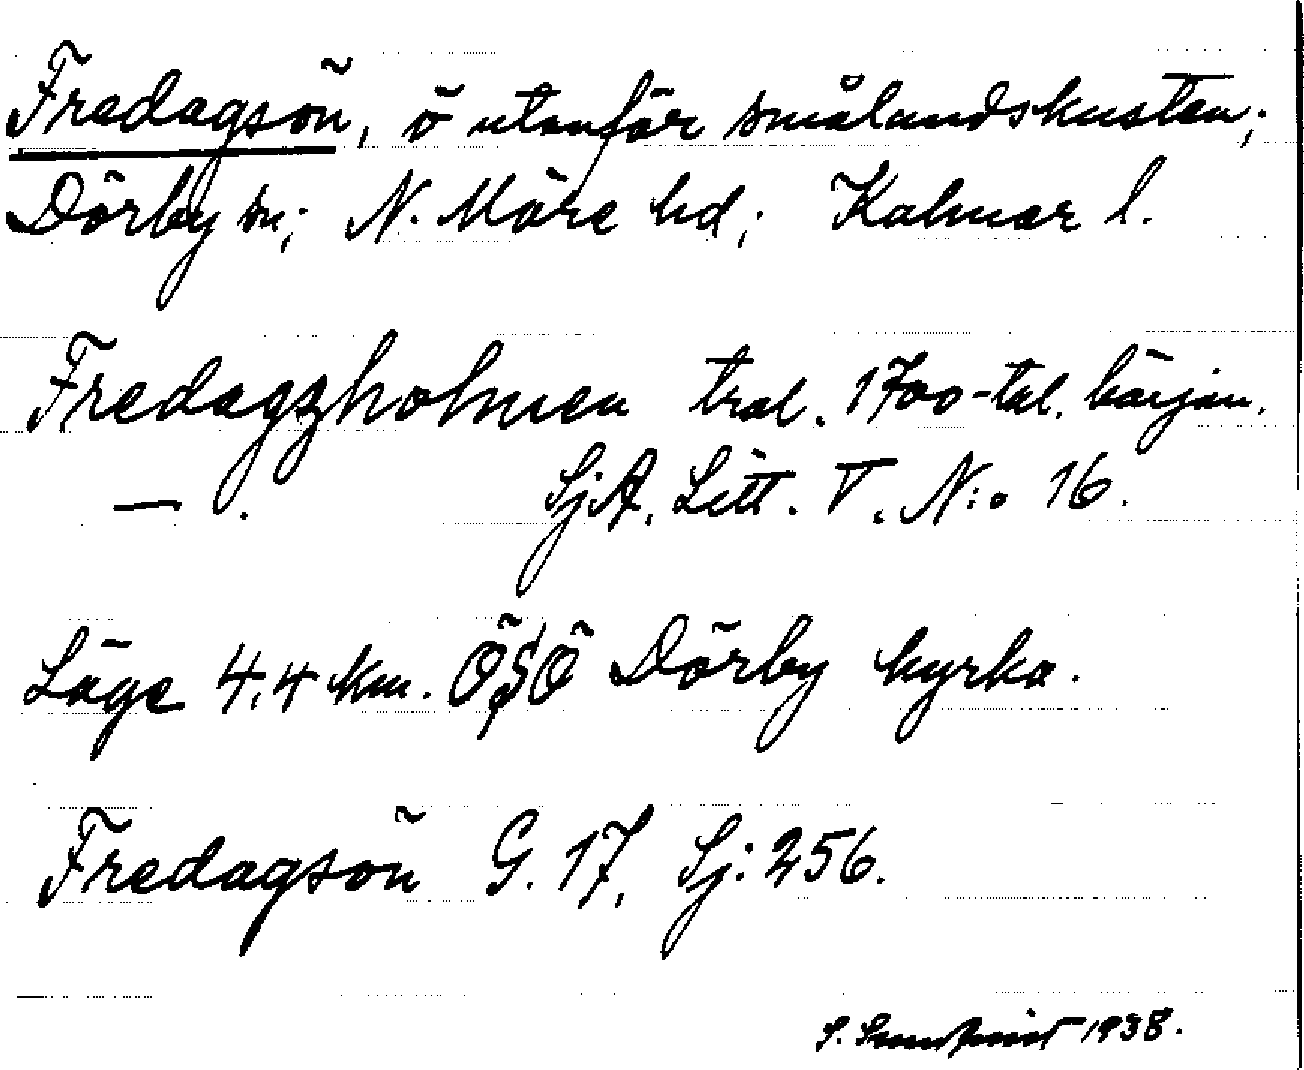 Fredagsön, ö utanför smålandskusten;
Dörby sn; N. Möre hd; Kalmar l.
Fredagzholmen tral. 1700-tal. början.
— . SjA. Litt. V. N:o 16.
Läge 4,4 km. ÖSÖ Dörby kyrka.
Fredagsön G. 17, Sj: 256.
S. Sundqvist 1938.